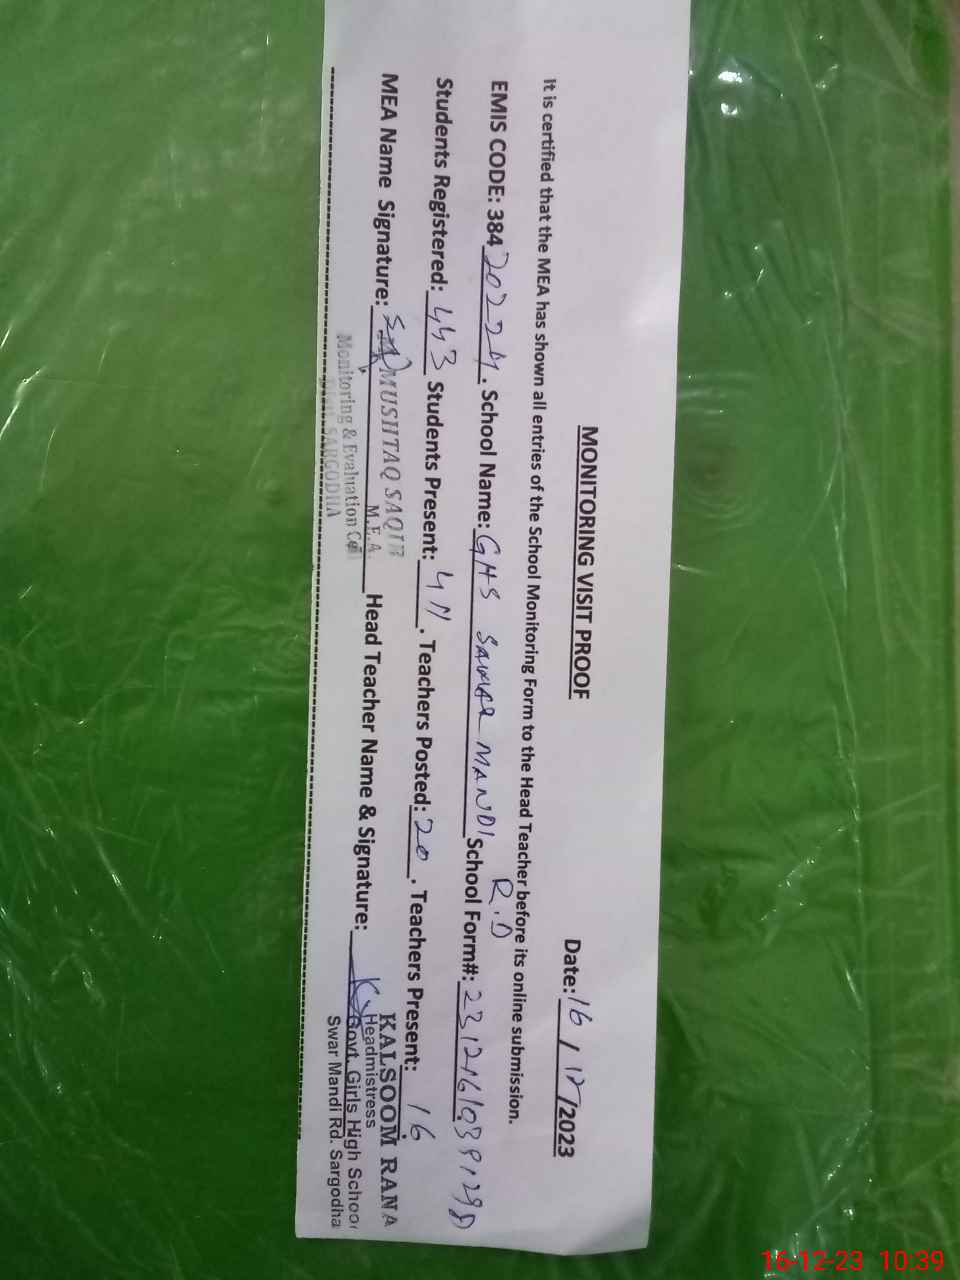 MONITORING VISIT PROOF
Date: 16 / 12 /2023
It is certified that the MEA has shown all entries of the School Monitoring Form to the Head Teacher before its online submission.
EMIS CODE: 38420224. School Name: GHS SAWAR MANDI R.D School Form#:
Students Registered: 443 Students Present: 411. Teachers Posted: 20. Teachers Present: 16
MEA Name Signature: MUSHTAQ SAQIB Head Teacher Name & Signature: KALSOOM RANA
M.E.A. Headmistress
Monitoring & Evaluation Cell Govt. Girls High School
SARGODHA Swar Mandi Rd. Sargodha
16-12-23 10:39